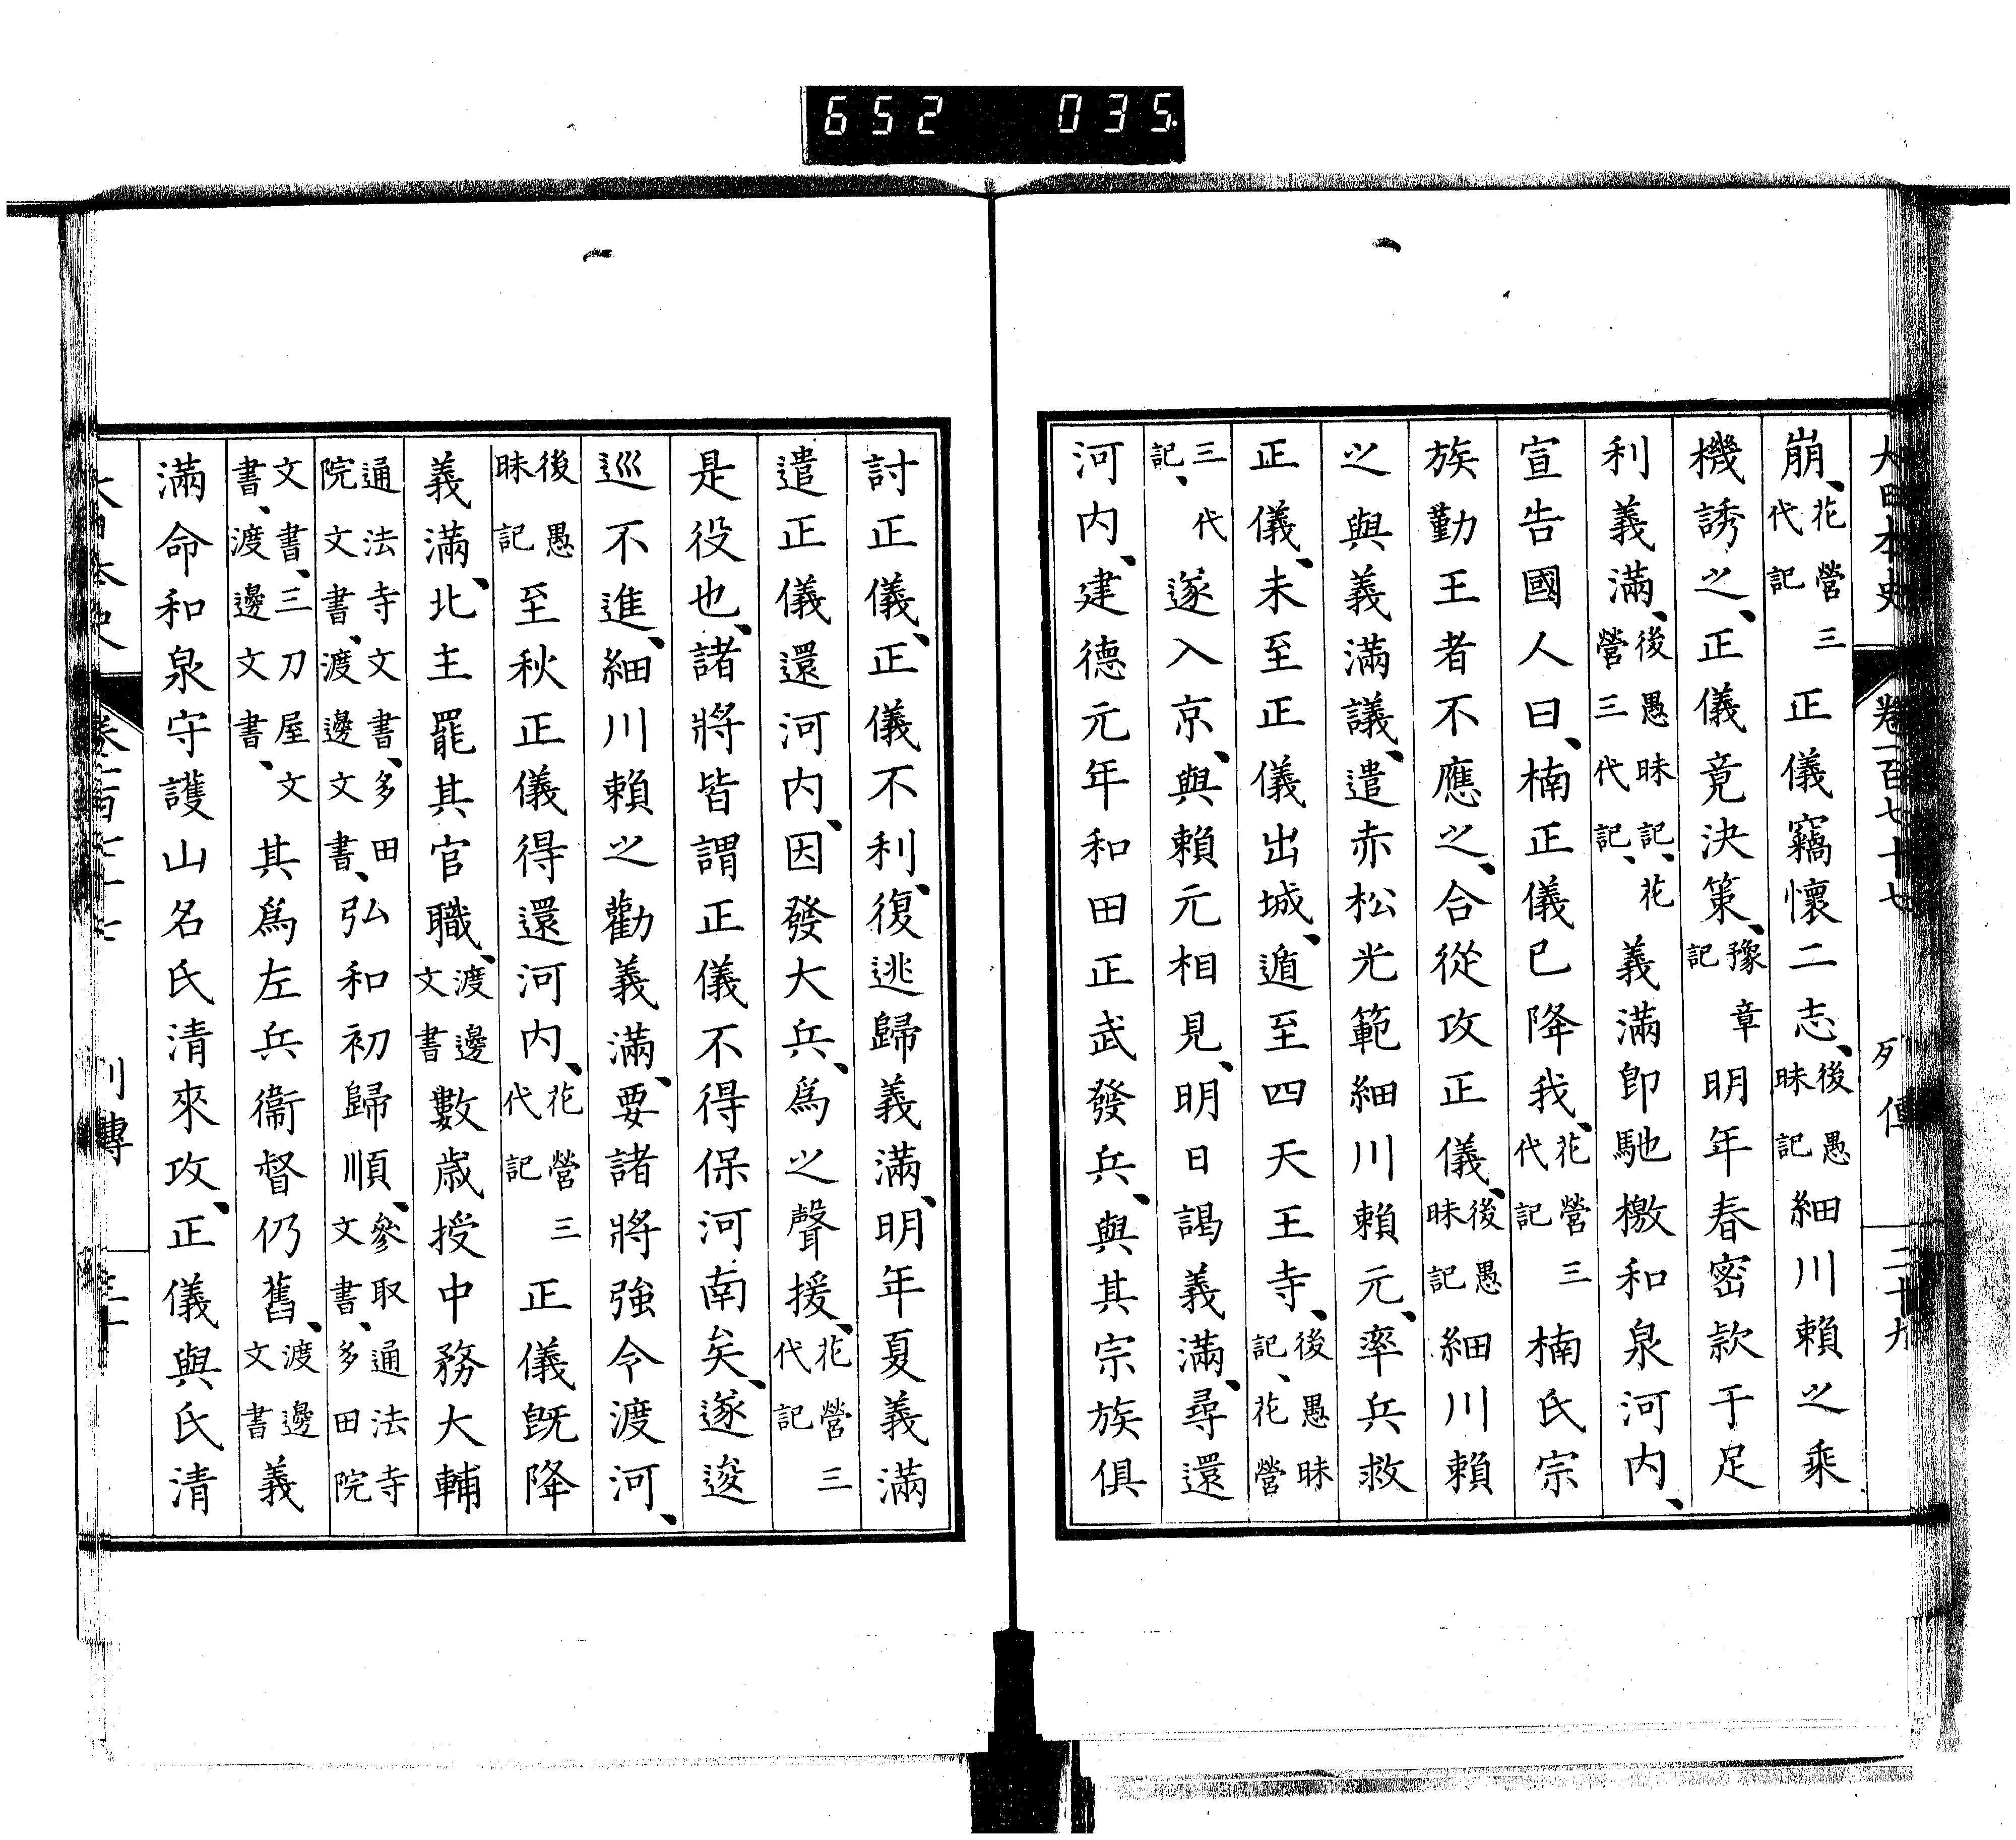 652 035
大日本史 卷一百七十七 列傳 二十九
崩、花營三代記正儀竊懷二志、後愚昧記細川賴之乘
機誘之、正儀竟決策、豫章記明年春密款于足
利義滿、後愚昧記、花營三代記、義滿卽馳檄和泉河內、
宣告國人曰、楠正儀已降我、花營三代記楠氏宗
族勤王者不應之、合從攻正儀、後愚昧記細川賴
之與義滿議、遣赤松光範細川賴元、率兵救
正儀、未至正儀出城、遁至四天王寺、後愚昧記、花營
三代記、遂入京、與賴元相見、明日謁義滿、尋還
河內、建德元年和田正武發兵、與其宗族俱
討正儀、正儀不利、復逃歸義滿、明年夏義滿
遣正儀還河內、因發大兵、爲之聲援、花營三代記
是役也、諸將皆謂正儀不得保河南矣、遂逡
巡不進、細川賴之勸義滿、要諸將強令渡河、
後愚昧記至秋正儀得還河內、花營三代記正儀旣降
義滿、北主罷其官職、渡邊文書數歲授中務大輔
通法寺文書、多田院文書、渡邊文書、弘和初歸順、參取通法寺文書、多田院
文書、三刀屋文書、渡邊文書、其爲左兵衞督仍舊、渡邊文書義
滿命和泉守護山名氏清來攻、正儀與氏清
列傳